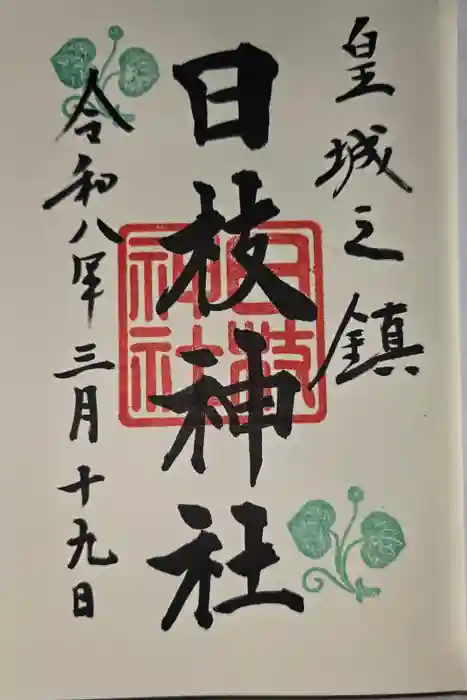 皇城之鎮
日枝神社
日枝神社
令和八年三月十九日